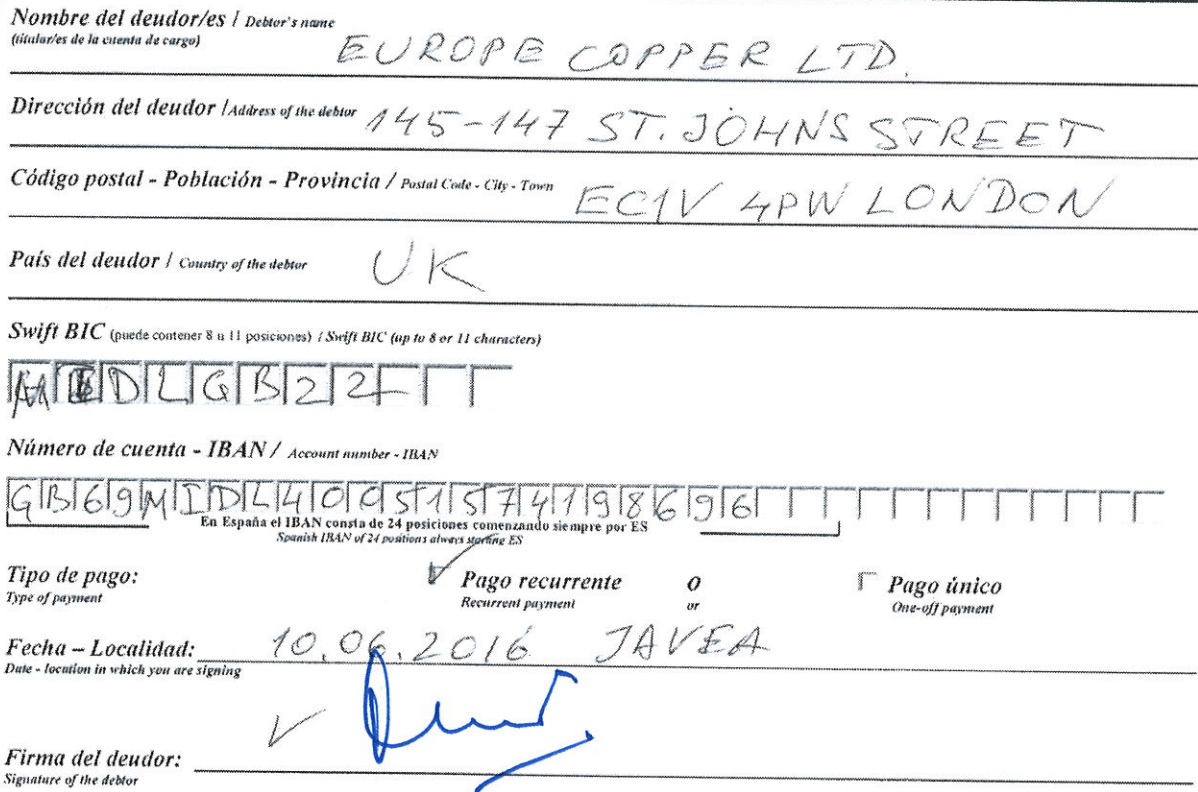 Nombre del deudor/es / Debtor's name
(titular/es de la cuenta de cargo)
EUROPE COPPER LTD.
Dirección del deudor / Address of the debtor 145-147 ST. JOHNS STREET
Código postal - Población - Provincia / Postal Code - City - Town EC1V 4PW LONDON
País del deudor / Country of the debtor UK
Swift BIC (puede contener 8 u 11 posiciones) / Swift BIC (up to 8 or 11 characters)
MIDLGB22
Número de cuenta - IBAN / Account number - IBAN
GB69MIDL40051574198696
En España el IBAN consta de 24 posiciones comenzando siempre por ES
Spanish IBAN of 24 positions always starting ES
Tipo de pago: Pago recurrente o Pago único
Type of payment Recurrent payment or One-off payment
Fecha – Localidad: 10.06.2016 JAVEA
Date - location in which you are signing
Firma del deudor:
Signature of the debtor